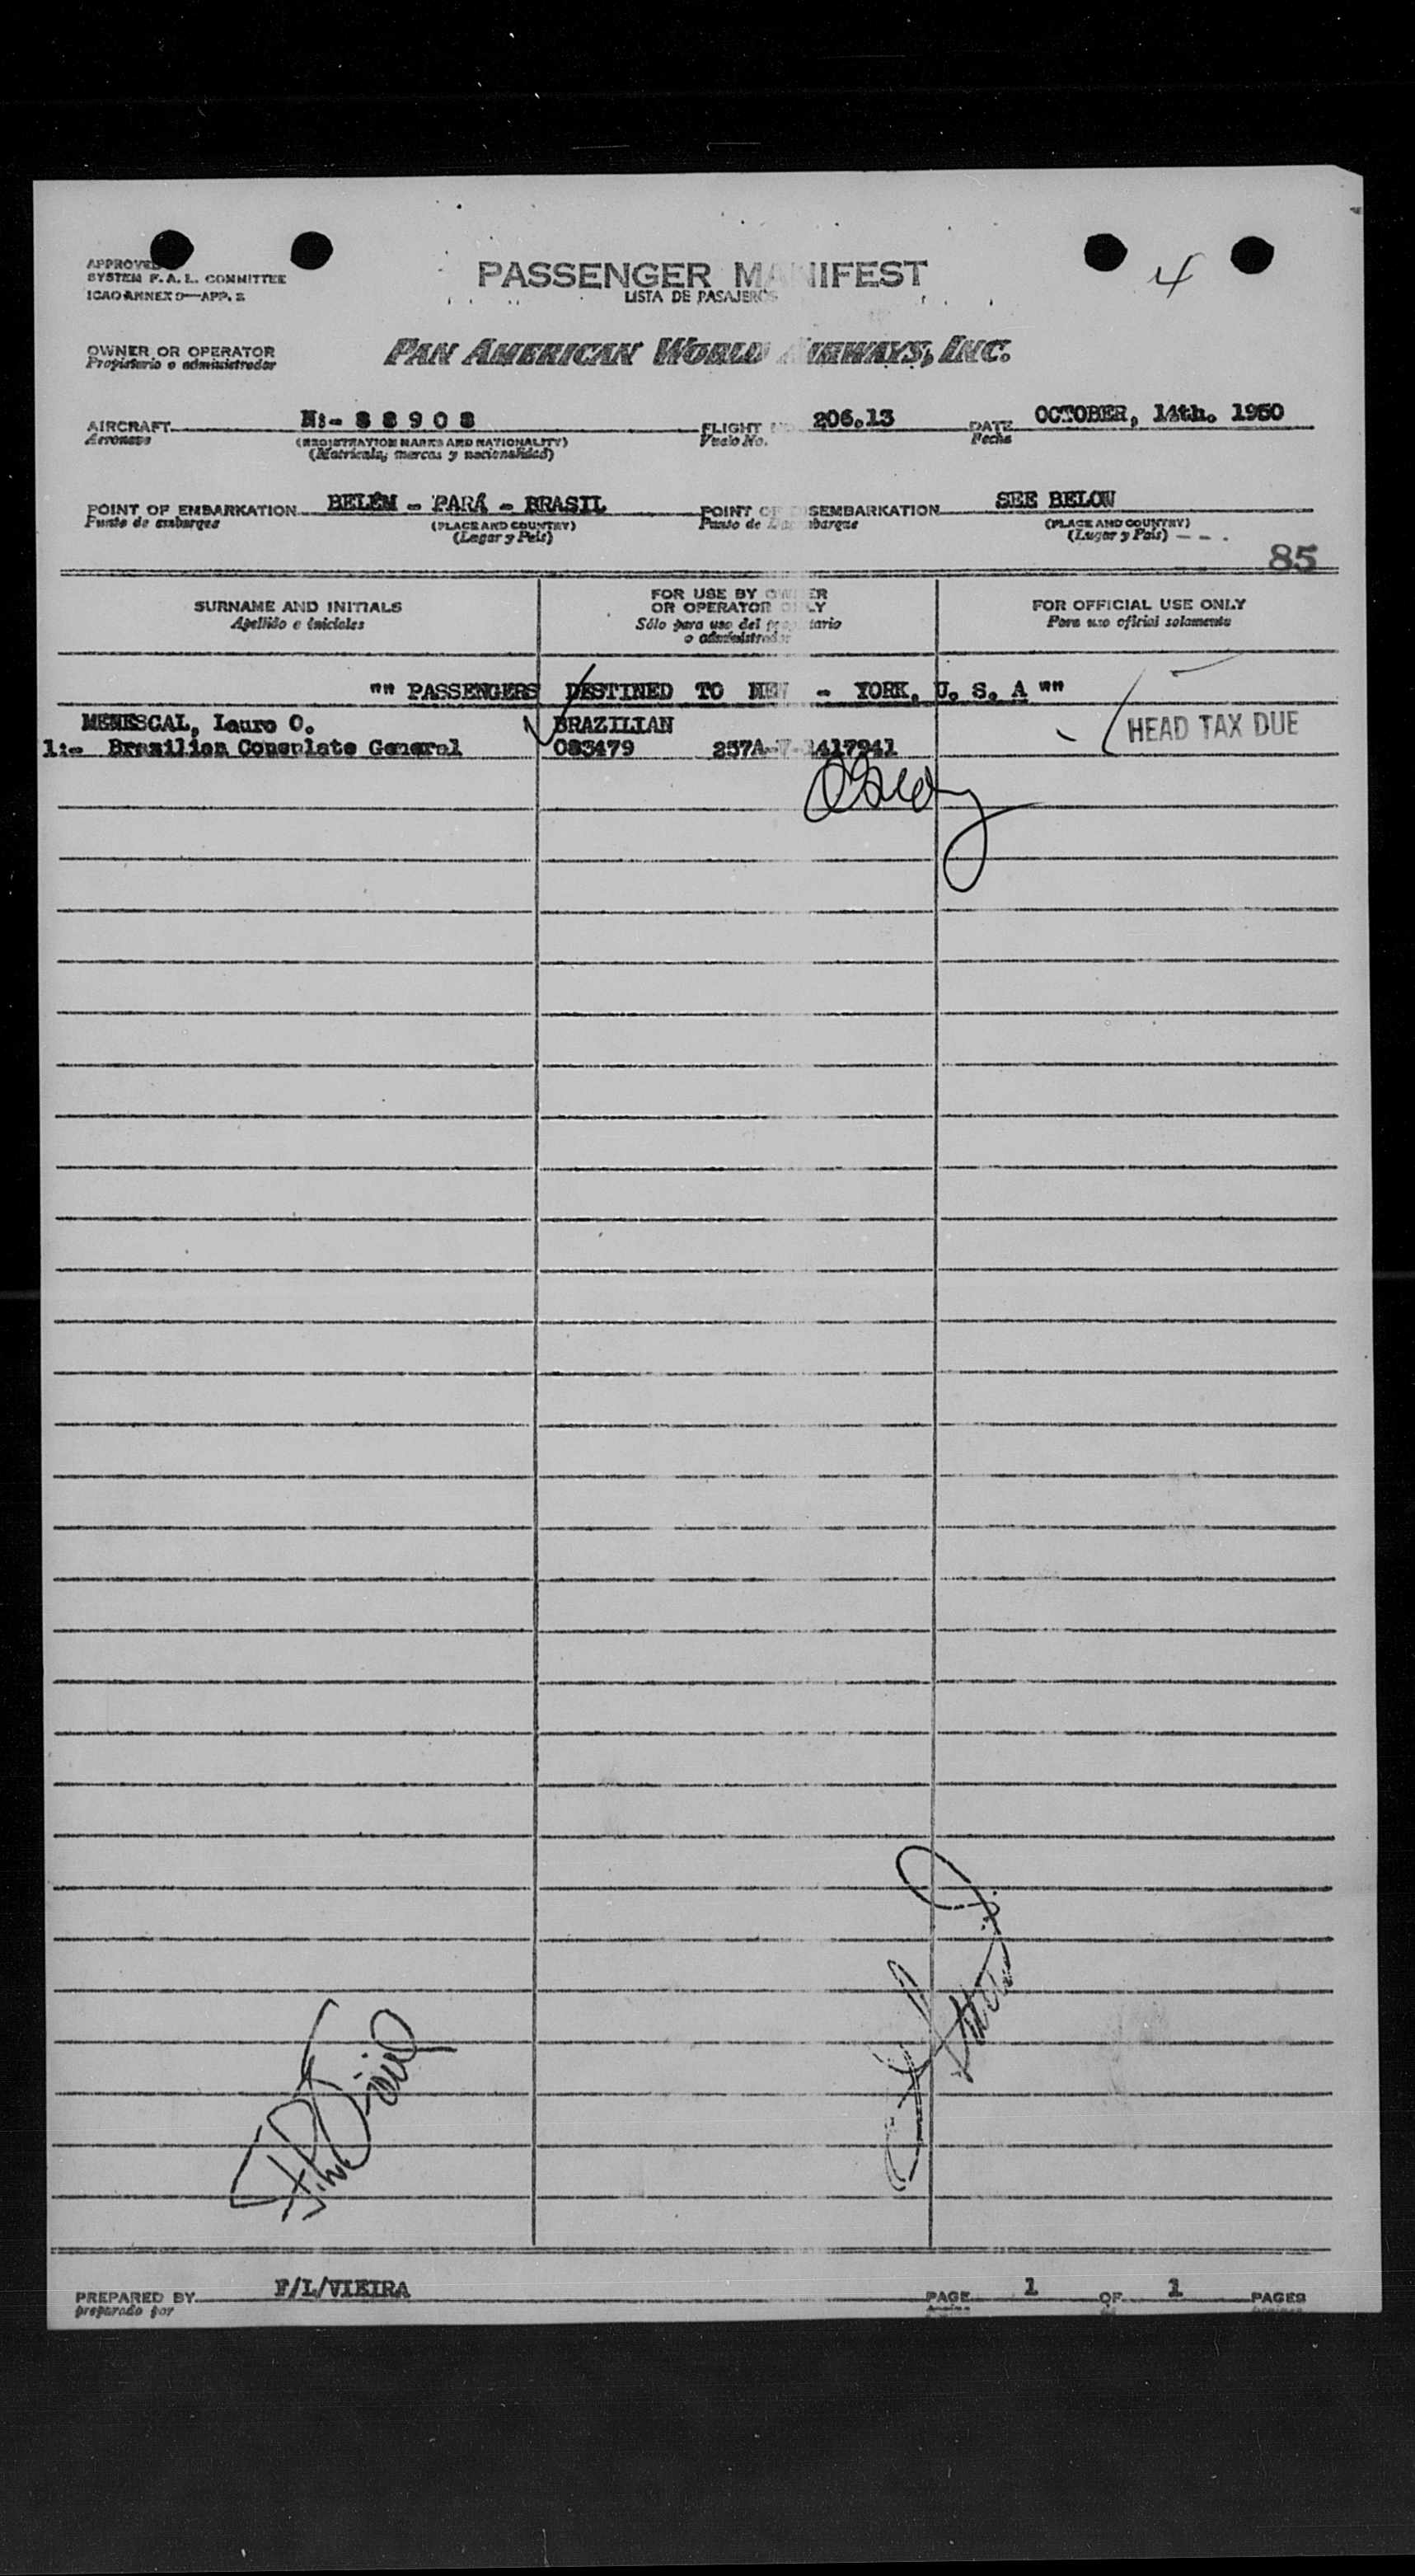 4
APPROVED
SYSTEM F.A.L. COMMITTEE
ICAO ANNEX 9—APP. 2
PASSENGER MANIFEST
LISTA DE PASAJEROS
OWNER OR OPERATOR
Propietario o administrador
PAN AMERICAN WORLD AIRWAYS, INC.
AIRCRAFT N:- 8 8 9 0 8 FLIGHT NO. 206.13 DATE OCTOBER, 14th. 1950
Aeronave (REGISTRATION MARKS AND NATIONALITY) Vuelo No. Fecha
(Matrícula, marcas y nacionalidad)
POINT OF EMBARKATION BELÉM - PARÁ - BRASIL POINT OF DISEMBARKATION SEE BELOW
Punto de embarque (PLACE AND COUNTRY) Punto de Desembarque (PLACE AND COUNTRY)
(Lugar y País) (Lugar y País) - - .
85
SURNAME AND INITIALS FOR USE BY OWNER OR OPERATOR ONLY FOR OFFICIAL USE ONLY
Apellido e iniciales Sólo para uso del propietario o administrador Para uso oficial solamente
"" PASSENGERS DESTINED TO NEW - YORK, U. S. A ""
MENESCAL, Lauro O. BRAZILIAN HEAD TAX DUE
1:- Brazilian Consulate General 083479 257A-7-1417941
PREPARED BY F/L/VIEIRA PAGE 1 OF 1 PAGES
preparado por